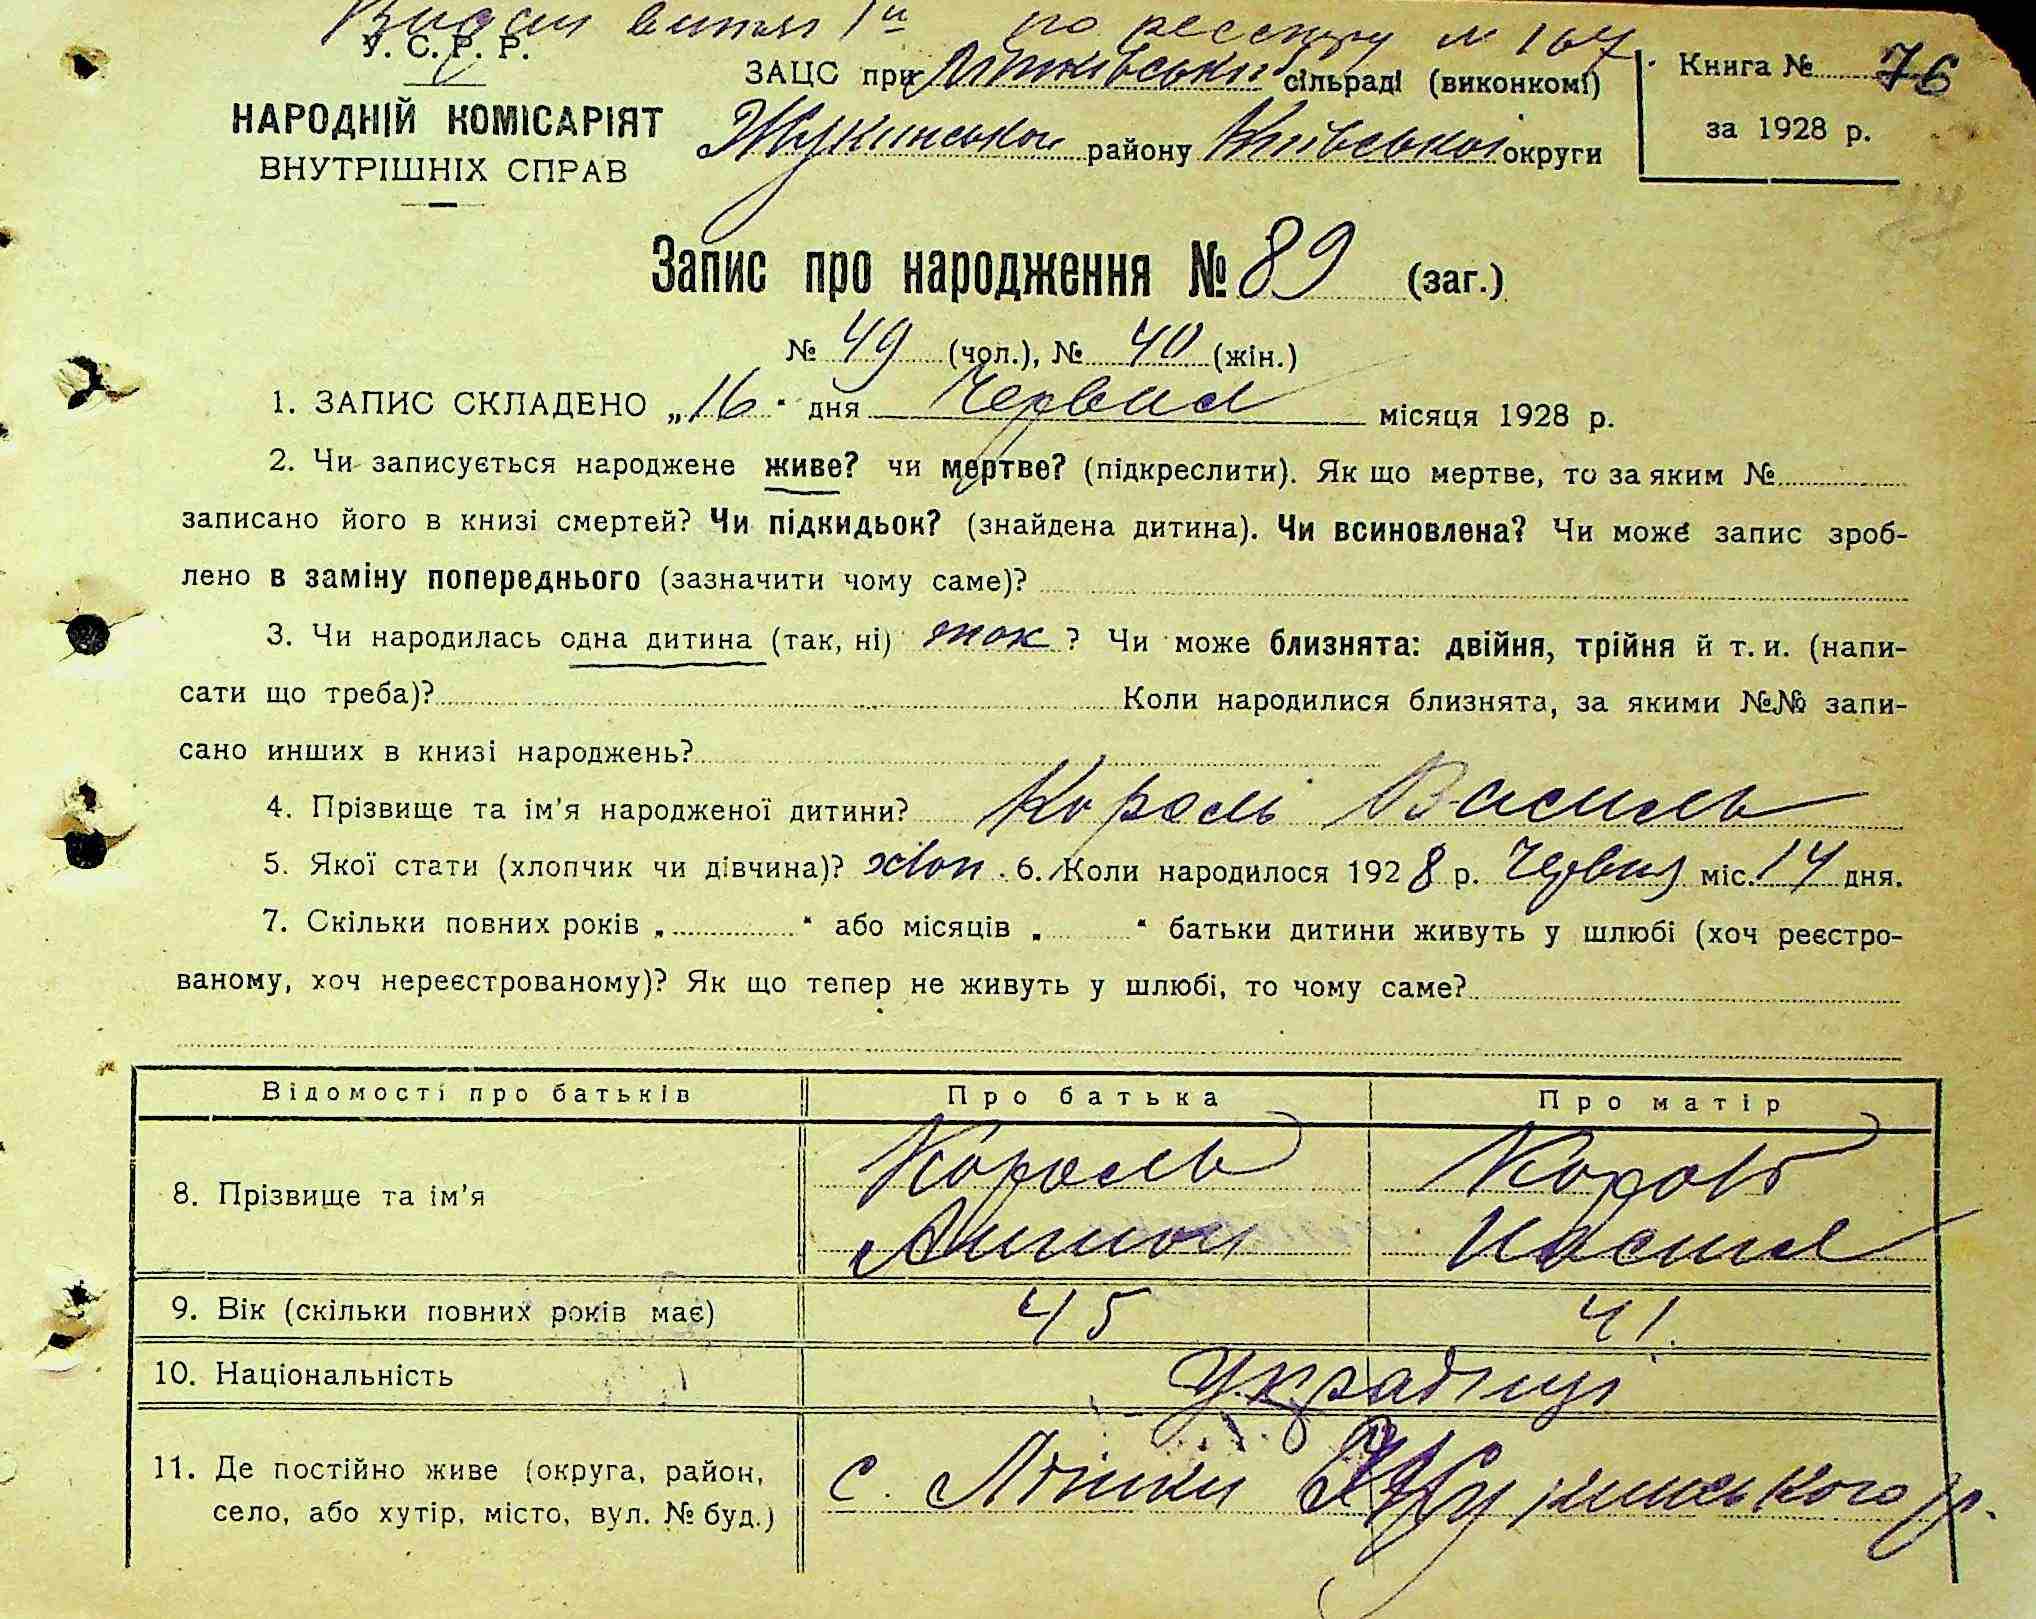 Видан витяг по реєстру № 167.
У. С. Р. Р.
НАРОДНІЙ КОМІСАРІЯТ
ВНУТРІШНІХ СПРАВ
ЗАЦС при Літківській сільраді (виконкомі)
Жукинського району Київської округи
Книга № 76
за 1928 р.
Запис про народження № 89 (заг.)
№ 49 (чол.), № 40 (жін.)
1. ЗАПИС СКЛАДЕНО „16" дня Червня місяця 1928 р.
2. Чи записується народжене живе? чи мертве? (підкреслити). Як що мертве, то за яким №
записано його в книзі смертей? Чи підкидьок? (знайдена дитина). Чи всиновлена? Чи може запис зроб-
лено в заміну попереднього (зазначити чому саме)?
3. Чи народилась одна дитина (так, ні) так ? Чи може близнята: двійня, трійня й т. и. (напи-
сати що треба)? Коли народилися близнята, за якими №№ запи-
сано инших в книзі народжень?
4. Прізвище та ім'я народженої дитини? Король Василь
5. Якої стати (хлопчик чи дівчина)? хлоп. 6. Коли народилося 1928 р. Червня міс. 14 дня.
7. Скільки повних років „ " або місяців „ " батьки дитини живуть у шлюбі (хоч реєстро-
ваному, хоч нереєстрованому)? Як що тепер не живуть у шлюбі, то чому саме?
Відомості про батьків Про батька Про матір
8. Прізвище та ім'я Король Король
Антон Настя
9. Вік (скільки повних років має) 45 41.
10. Національність Українці
11. Де постійно живе (округа, район,
село, або хутір, місто, вул. № буд.) с. Літки Жукинського р.